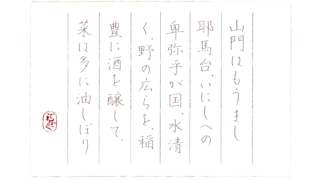 山門はもうまし
耶馬台、いにしへの
卑弥乎が国、水清
く、野の広らを、稲
豊に酒を醸して、
菜は多に油しぼり